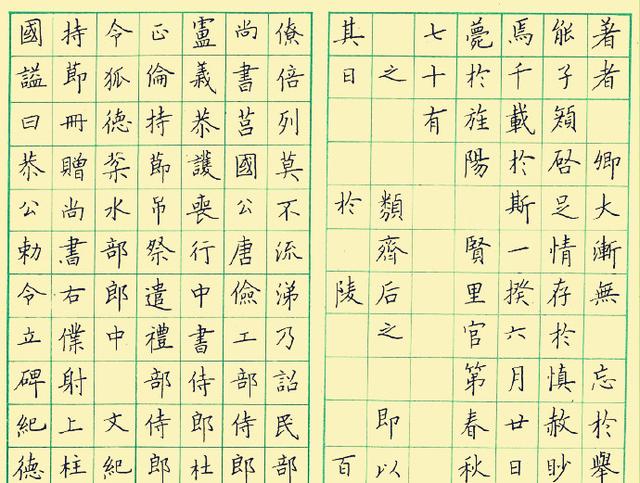 著者 卿大漸無 忘於舉
能子頴啓足情存於慎赦眇
焉千載於斯一揆六月廿日
薨於旌陽 賢里官第春秋
七十有
之 類齊后之 即以
其日 於 陵 百
僚倍列莫不流涕乃詔民部
尚書莒國公唐儉工部侍郎
盧義恭護喪行中書侍郎杜
正倫持節吊祭遣禮部侍郎
令狐德棻水部郎中 文紀
持節冊贈尚書右僕射上柱
國謚曰恭公勅令立碑紀德